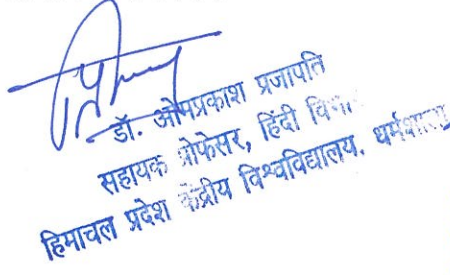 डॉ. ओमप्रकाश प्रजापति
सहायक प्रोफेसर, हिंदी विभाग
हिमाचल प्रदेश केंद्रीय विश्वविद्यालय, धर्मशाला